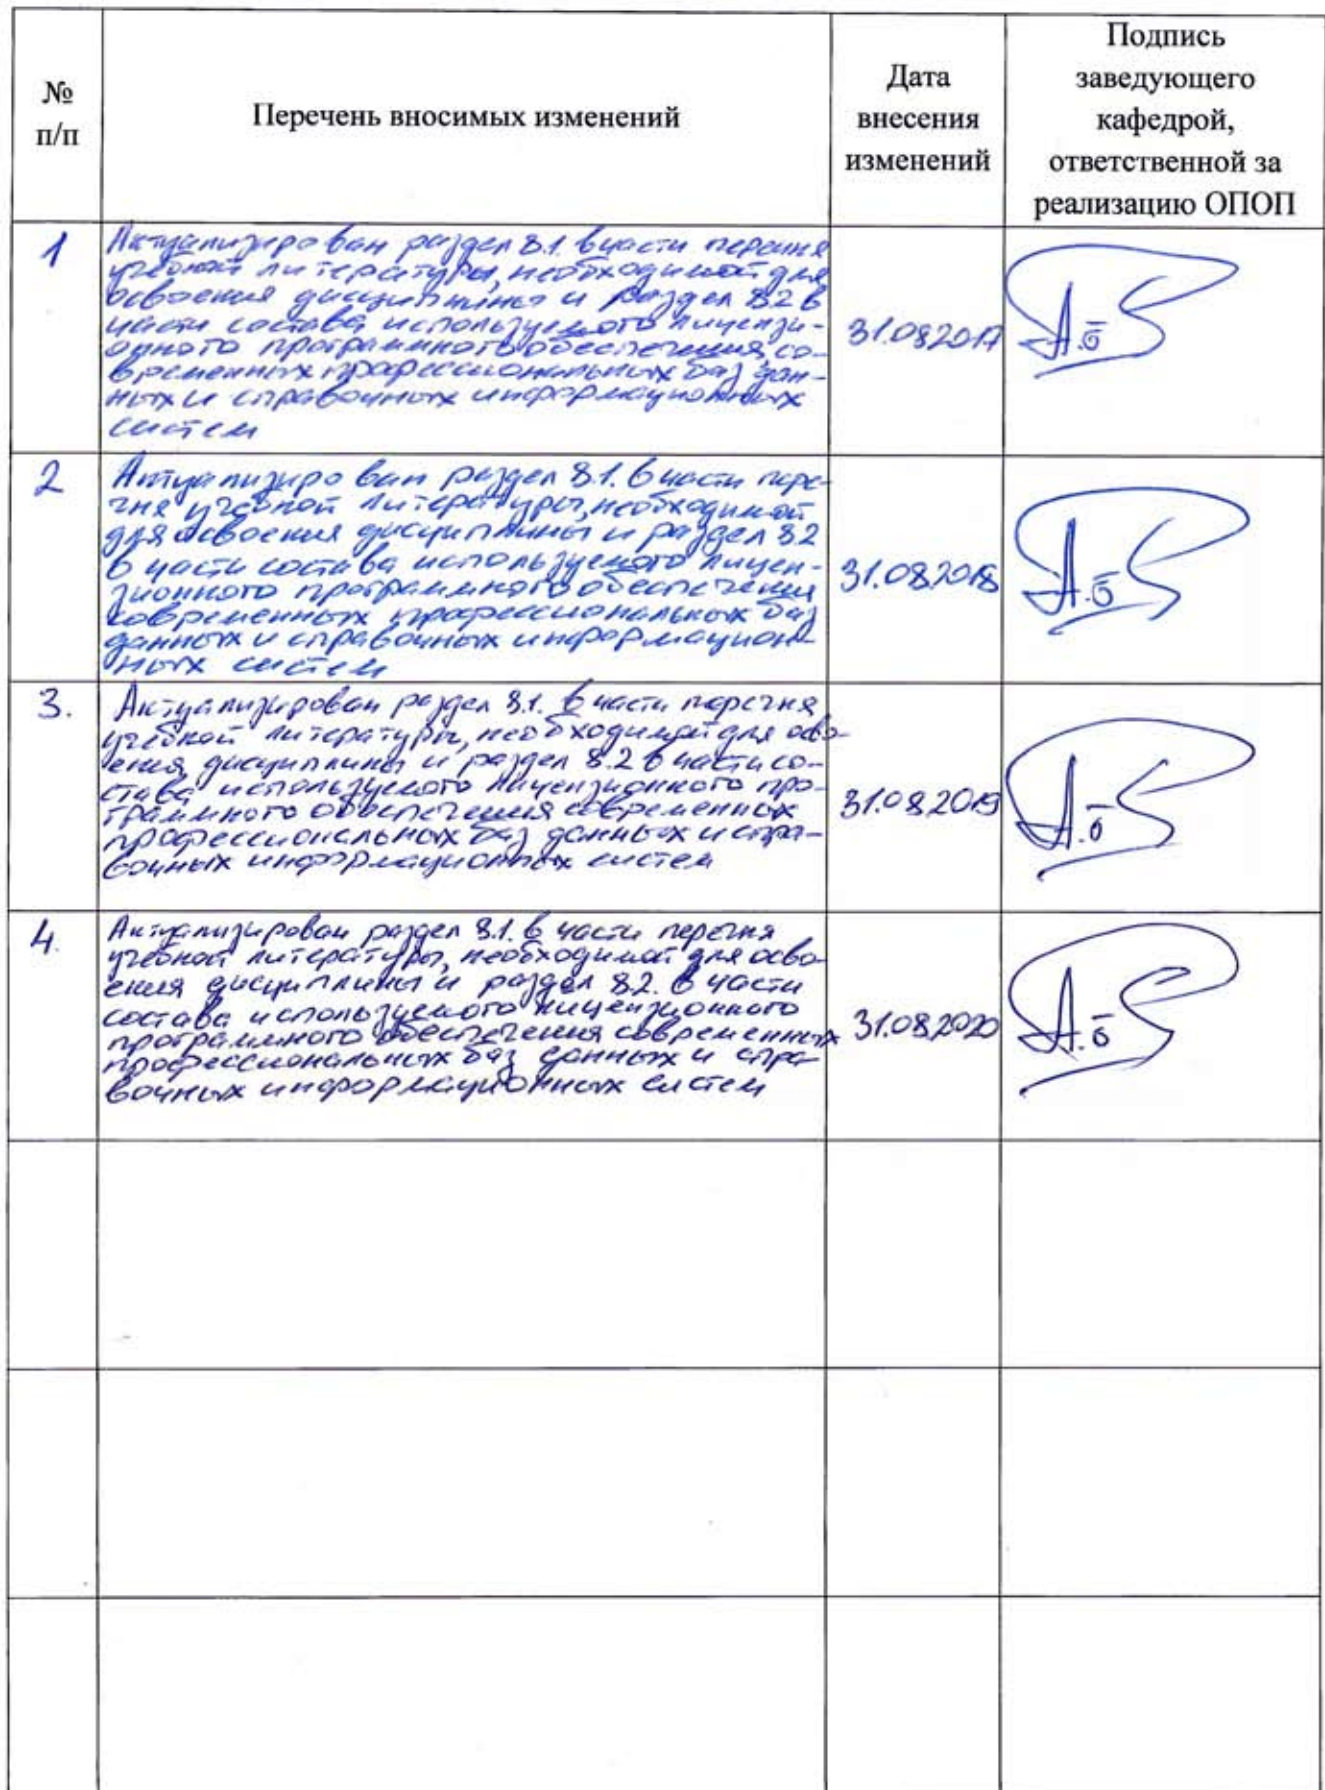 №
п/п
Перечень вносимых изменений
Дата
внесения
изменений
Подпись
заведующего
кафедрой,
ответственной за
реализацию ОПОП
1
Актуализирован раздел 8.1. в части перечня
учебной литературы, необходимой для
освоения дисциплины и раздел 8.2 в
части состава используемого лицензи-
онного программного обеспечения, со-
временных профессиональных баз дан-
ных и справочных информационных
систем
31.08.2017
А.б
2
Актуализирован раздел 8.1. в части переч-
чня учебной литературы, необходимой
для освоения дисциплины и раздел 8.2
в части состава используемого лицен-
зионного программного обеспечения
современных профессиональных баз
данных и справочных информацион-
ных систем
31.08.2018
А.б
3.
Актуализирован раздел 8.1. в части перечня
учебной литературы, необходимой для осво-
ения дисциплины и раздел 8.2 в части со-
става используемого лицензионного про-
граммного обеспечения современных
профессиональных баз данных и спра-
вочных информационных систем
31.08.2019
А.б
4.
Актуализирован раздел 8.1. в части перечня
учебной литературы, необходимой для осво-
ения дисциплины и раздел 8.2. в части
состава используемого лицензионного
программного обеспечения современных
профессиональных баз данных и спра-
вочных информационных систем
31.08.2020
А.б